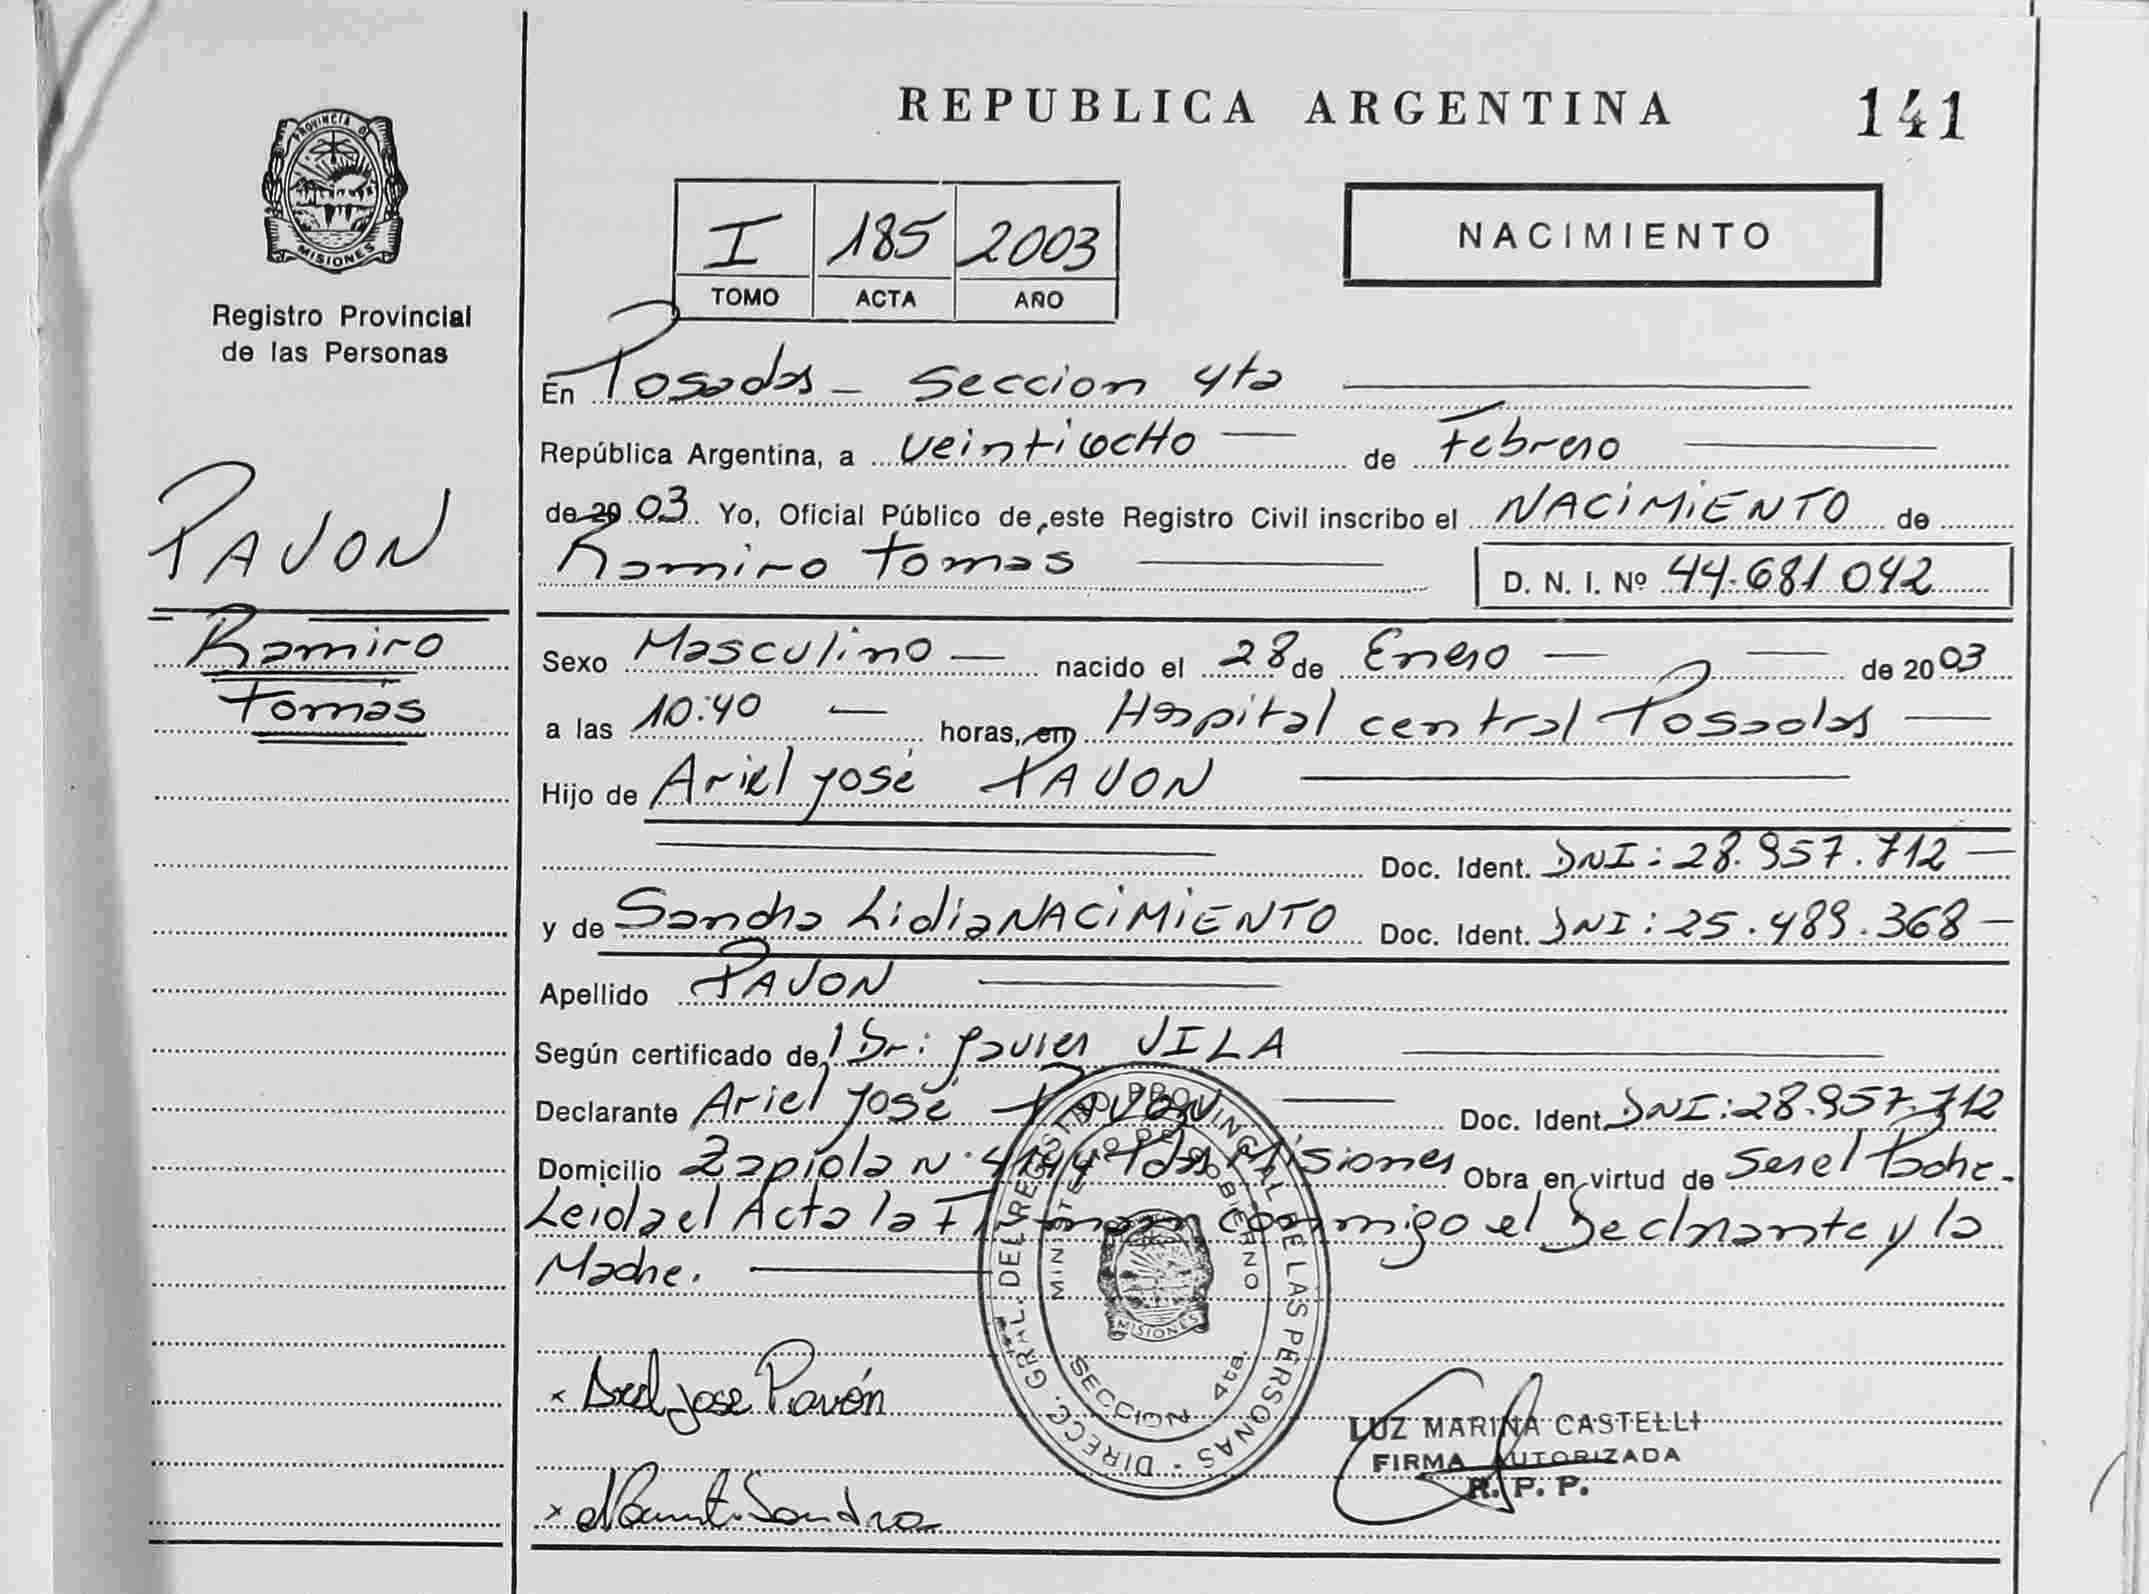 REPUBLICA ARGENTINA
141
PROVINCIA D
MISIONES
Registro Provincial
de las Personas
I 185 2003
TOMO ACTA AÑO
NACIMIENTO
PAVON
Ramiro
Tomás
En Posadas - Seccion 4ta
República Argentina, a veintiocho de Febrero
de 20 03 Yo, Oficial Público de este Registro Civil inscribo el NACIMIENTO de
Ramiro Tomas D. N. I. Nº 44.681.042
Sexo Masculino nacido el 28 de Enero de 2003
a las 10:40 horas, en Hospital central Posadas
Hijo de Ariel José PAVON
Doc. Ident. DNI: 28.957.712
y de Sandra Lidia NACIMIENTO Doc. Ident. DNI: 25.489.368
Apellido PAVON
Según certificado de Dr: Javier VILA
Declarante Ariel José PAVON Doc. Ident. DNI: 28.957.712
Domicilio Zapiola Nº Misiones Obra en virtud de Ser el Padre.
Leida el Acta la Firman conmigo el Declarante y la
Madre.
DIRECC. GRAL. DEL REGISTRO PROVINCIAL DE LAS PERSONAS
MINISTERIO DE GOBIERNO
MISIONES
SECCION 4ta.
x Ariel Jose Pavón
LUZ MARINA CASTELLI
FIRMA AUTORIZADA
R. P. P.
x Sandra